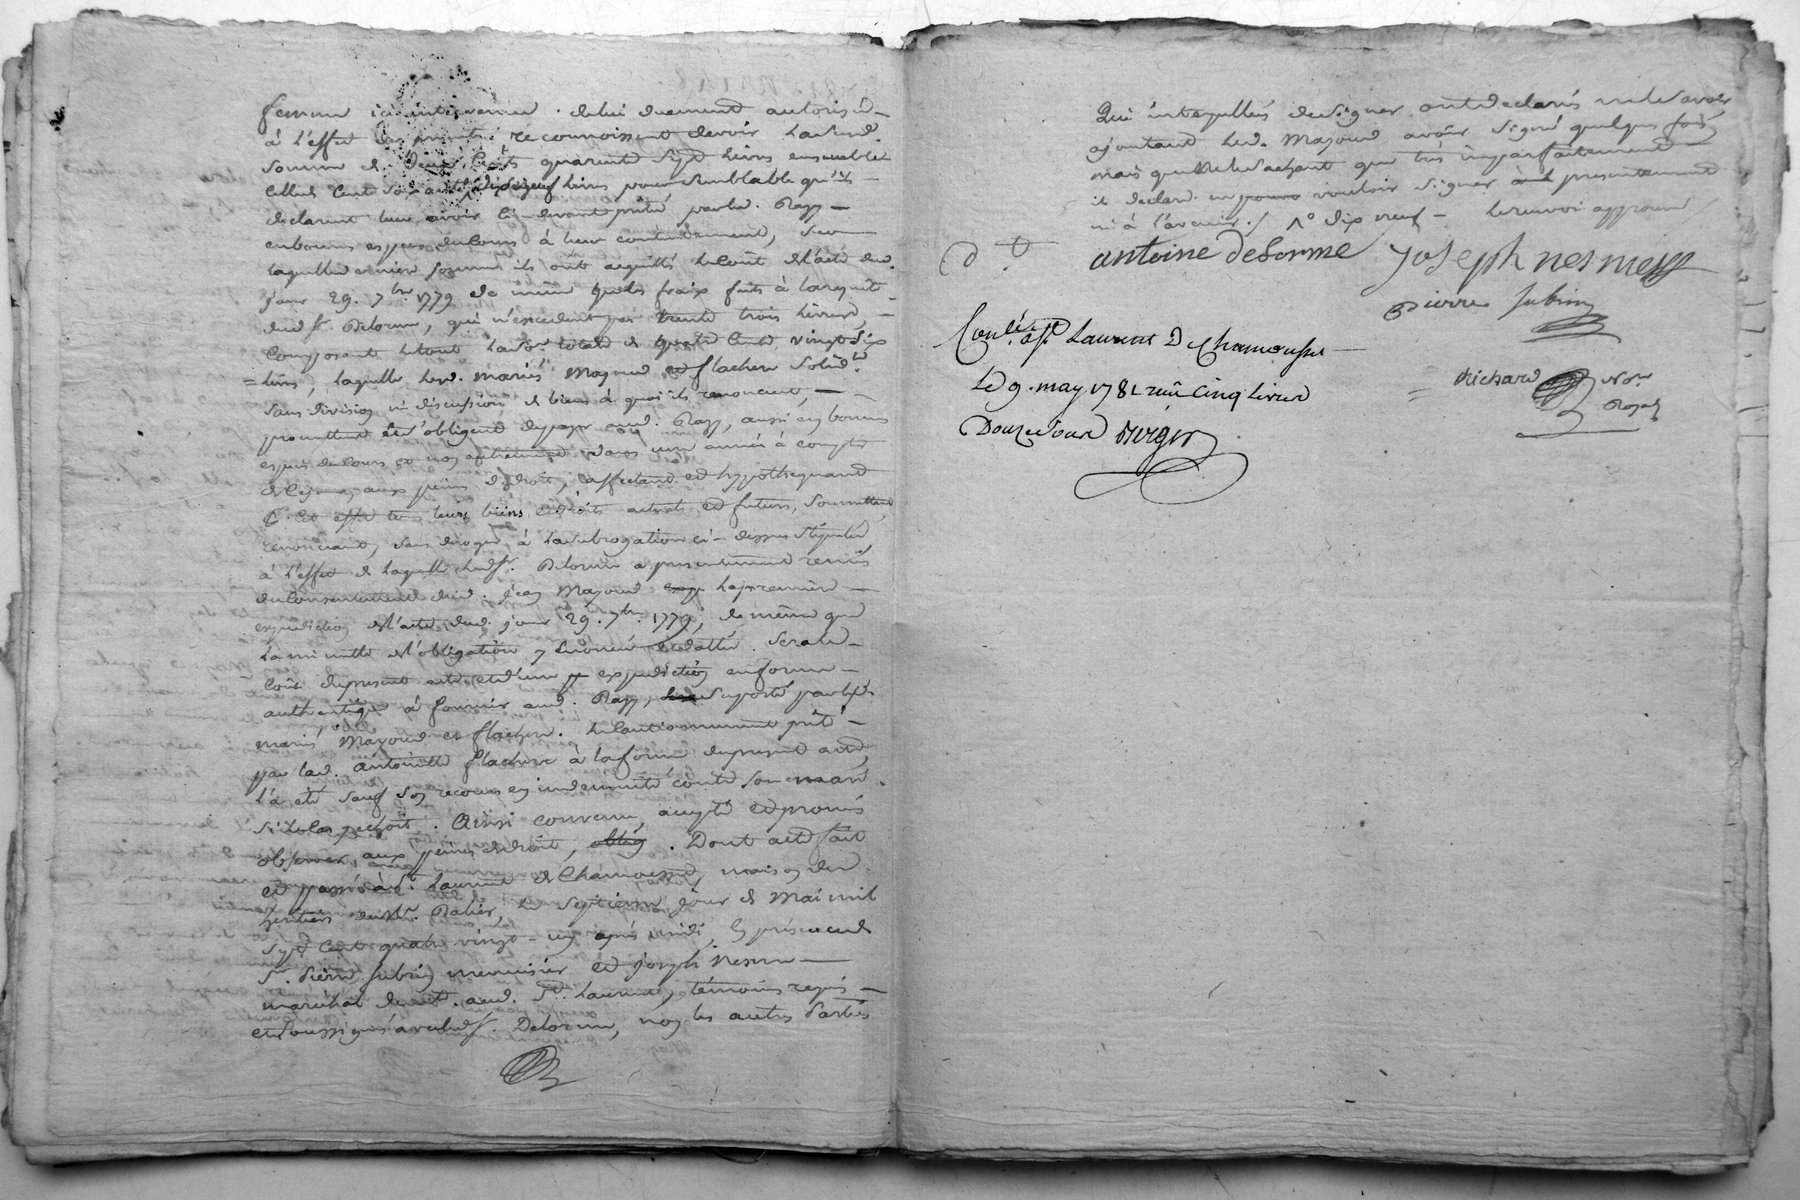 femme ici intervenue. de lui duement autorisée
à l'effet des presentes reconnoissent devoir
somme de deux Cents quarante sept livres ensemble
celle de Cent soixante dixneuf livres pour semblable qu'ils
declarent leur avoir ci-devant prêté par led. Razy
en bonnes especes du cours à leur contentement,
laquelle derniere somme ils ont acquitté le coût de l'acte dud.
jour 29. 7bre. 1779 de même que les frais faits à la requête
dud. Sr. Delorme, qui n'excedent pas trente trois livres,
Composant le tout la somme totale de quatre Cents vingt six
livres, laquelle lesd. mariés Mayoud et flachere solid.t
sans division ni discussion de biens à quoi ils renoncent,
promettent et s'obligent de payer aud. Razy, aussi en bonnes
especes du cours et non autrement dans une année à compter
de ce jour, aux peines de droit, affectant et hypothequant
à cet effet tous leurs biens et droits actuels et futurs, soumettant
renonceant, sans deroger à la subrogation ci-dessus stipulée
à l'effet de laquelle led. Sr. Delorme a presentement remis
du consentement dud. jean Mayoud la premiere
expedition de l'acte dud. jour 29. 7bre. 1779, de même que
la minutte de l'obligation y enoncée et dattée. Sera le
Coût du present acte et d'une expedition en forme
authentique à fournir aud. Razy, supporté par lesd.
mariés Mayoud et flachere. le cautionnement prêté
par lad. antoinette flachere à la forme du present acte,
l'a été sauf son recours en indemnité contre son mari.
si le cas y echoit. Ainsi convenu, accepté et promis
observer, aux peines de droit, oblig. Dont acte fait
et passé à St. Laurent de Chamousset, maison des
heritiers de Mr. Balier, le septieme jour de Mai mil
sept Cent quatre vingt-un après midi, En présence de
Sr. Pierre Subrin menuisier et joseph Nesme
marechal demt. aud. St. Laurent, témoins requis
et soussignés avec led. Sr. Delorme, non les autres Parties
Qui interpellés de signer ont declarés ne le savoir
ajoutant led. Mayoud avoir signé quelques fois
mais que ne le sachant que très imparfaitement
il declare vouloir signer presentement
ni à l'avenir. / No dix neuf - le renvoi approuvé
D. D
antoine delorme joseph nesme
pierre subrin
Conlé. a St Laurent De Chamousset
Le 9. may 1781 reçu Cinq livres
Douze sous Berger
Richard Nore
Royal